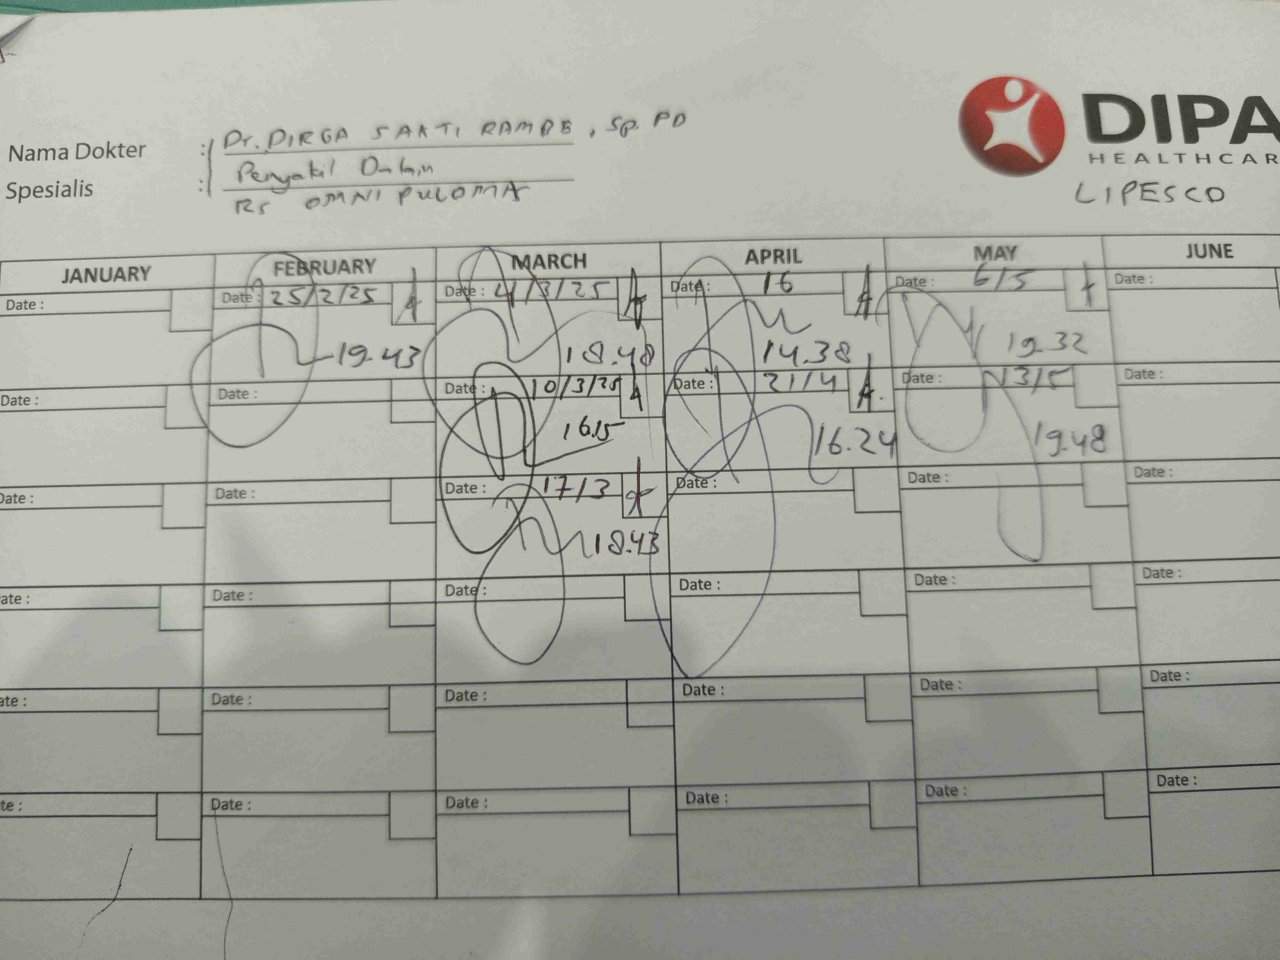 Nama Dokter : Dr. DIRGA SAKTI RAMBE, SP. PD
Spesialis : Penyakit Dalam
RS OMNI PULOMA
DIPA
HEALTHCAR
LIPESCO
JANUARY FEBRUARY MARCH APRIL MAY JUNE
Date : Date : 25/2/25 Date : 4/3/25 Date : 16 Date : 6/5 Date :
19.43 18.48 14.38 19.32
Date : Date : Date : 10/3/25 Date : 21/4 Date : 13/5 Date :
16.15 16.24 19.48
Date : Date : Date : 17/3 Date : Date : Date :
18.43
ate : Date : Date : Date : Date : Date :
ate : Date : Date : Date : Date : Date :
te : Date : Date : Date : Date : Date :